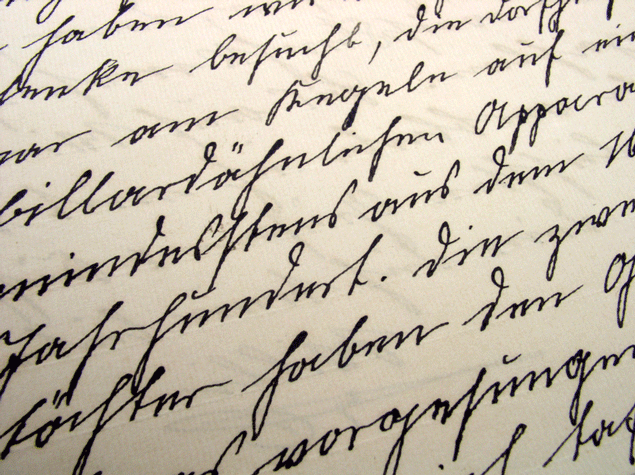 haben wi
besucht, die dorf
war am Kegeln auf ei
billardähnlichen Appara
mindestens aus dem 16
Jahrhundert. Die zwe
töchter haben den G
vorgesungen